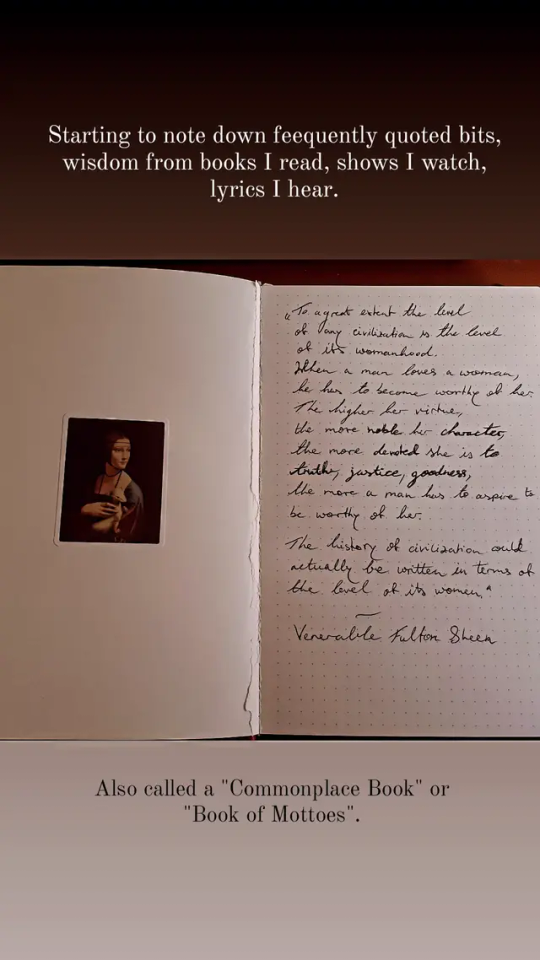 Starting to note down feequently quoted bits,
wisdom from books I read, shows I watch,
lyrics I hear.
"To a great extent the level
of any civilization is the level
of its womanhood.
When a man loves a woman,
he has to become worthy of her.
The higher her virtue,
the more noble her character,
the more devoted she is to
truth, justice, goodness,
the more a man has to aspire to
be worthy of her.
The history of civilization could
actually be written in terms of
the level of its women."
Venerable Fulton Sheen
Also called a "Commonplace Book" or
"Book of Mottoes".